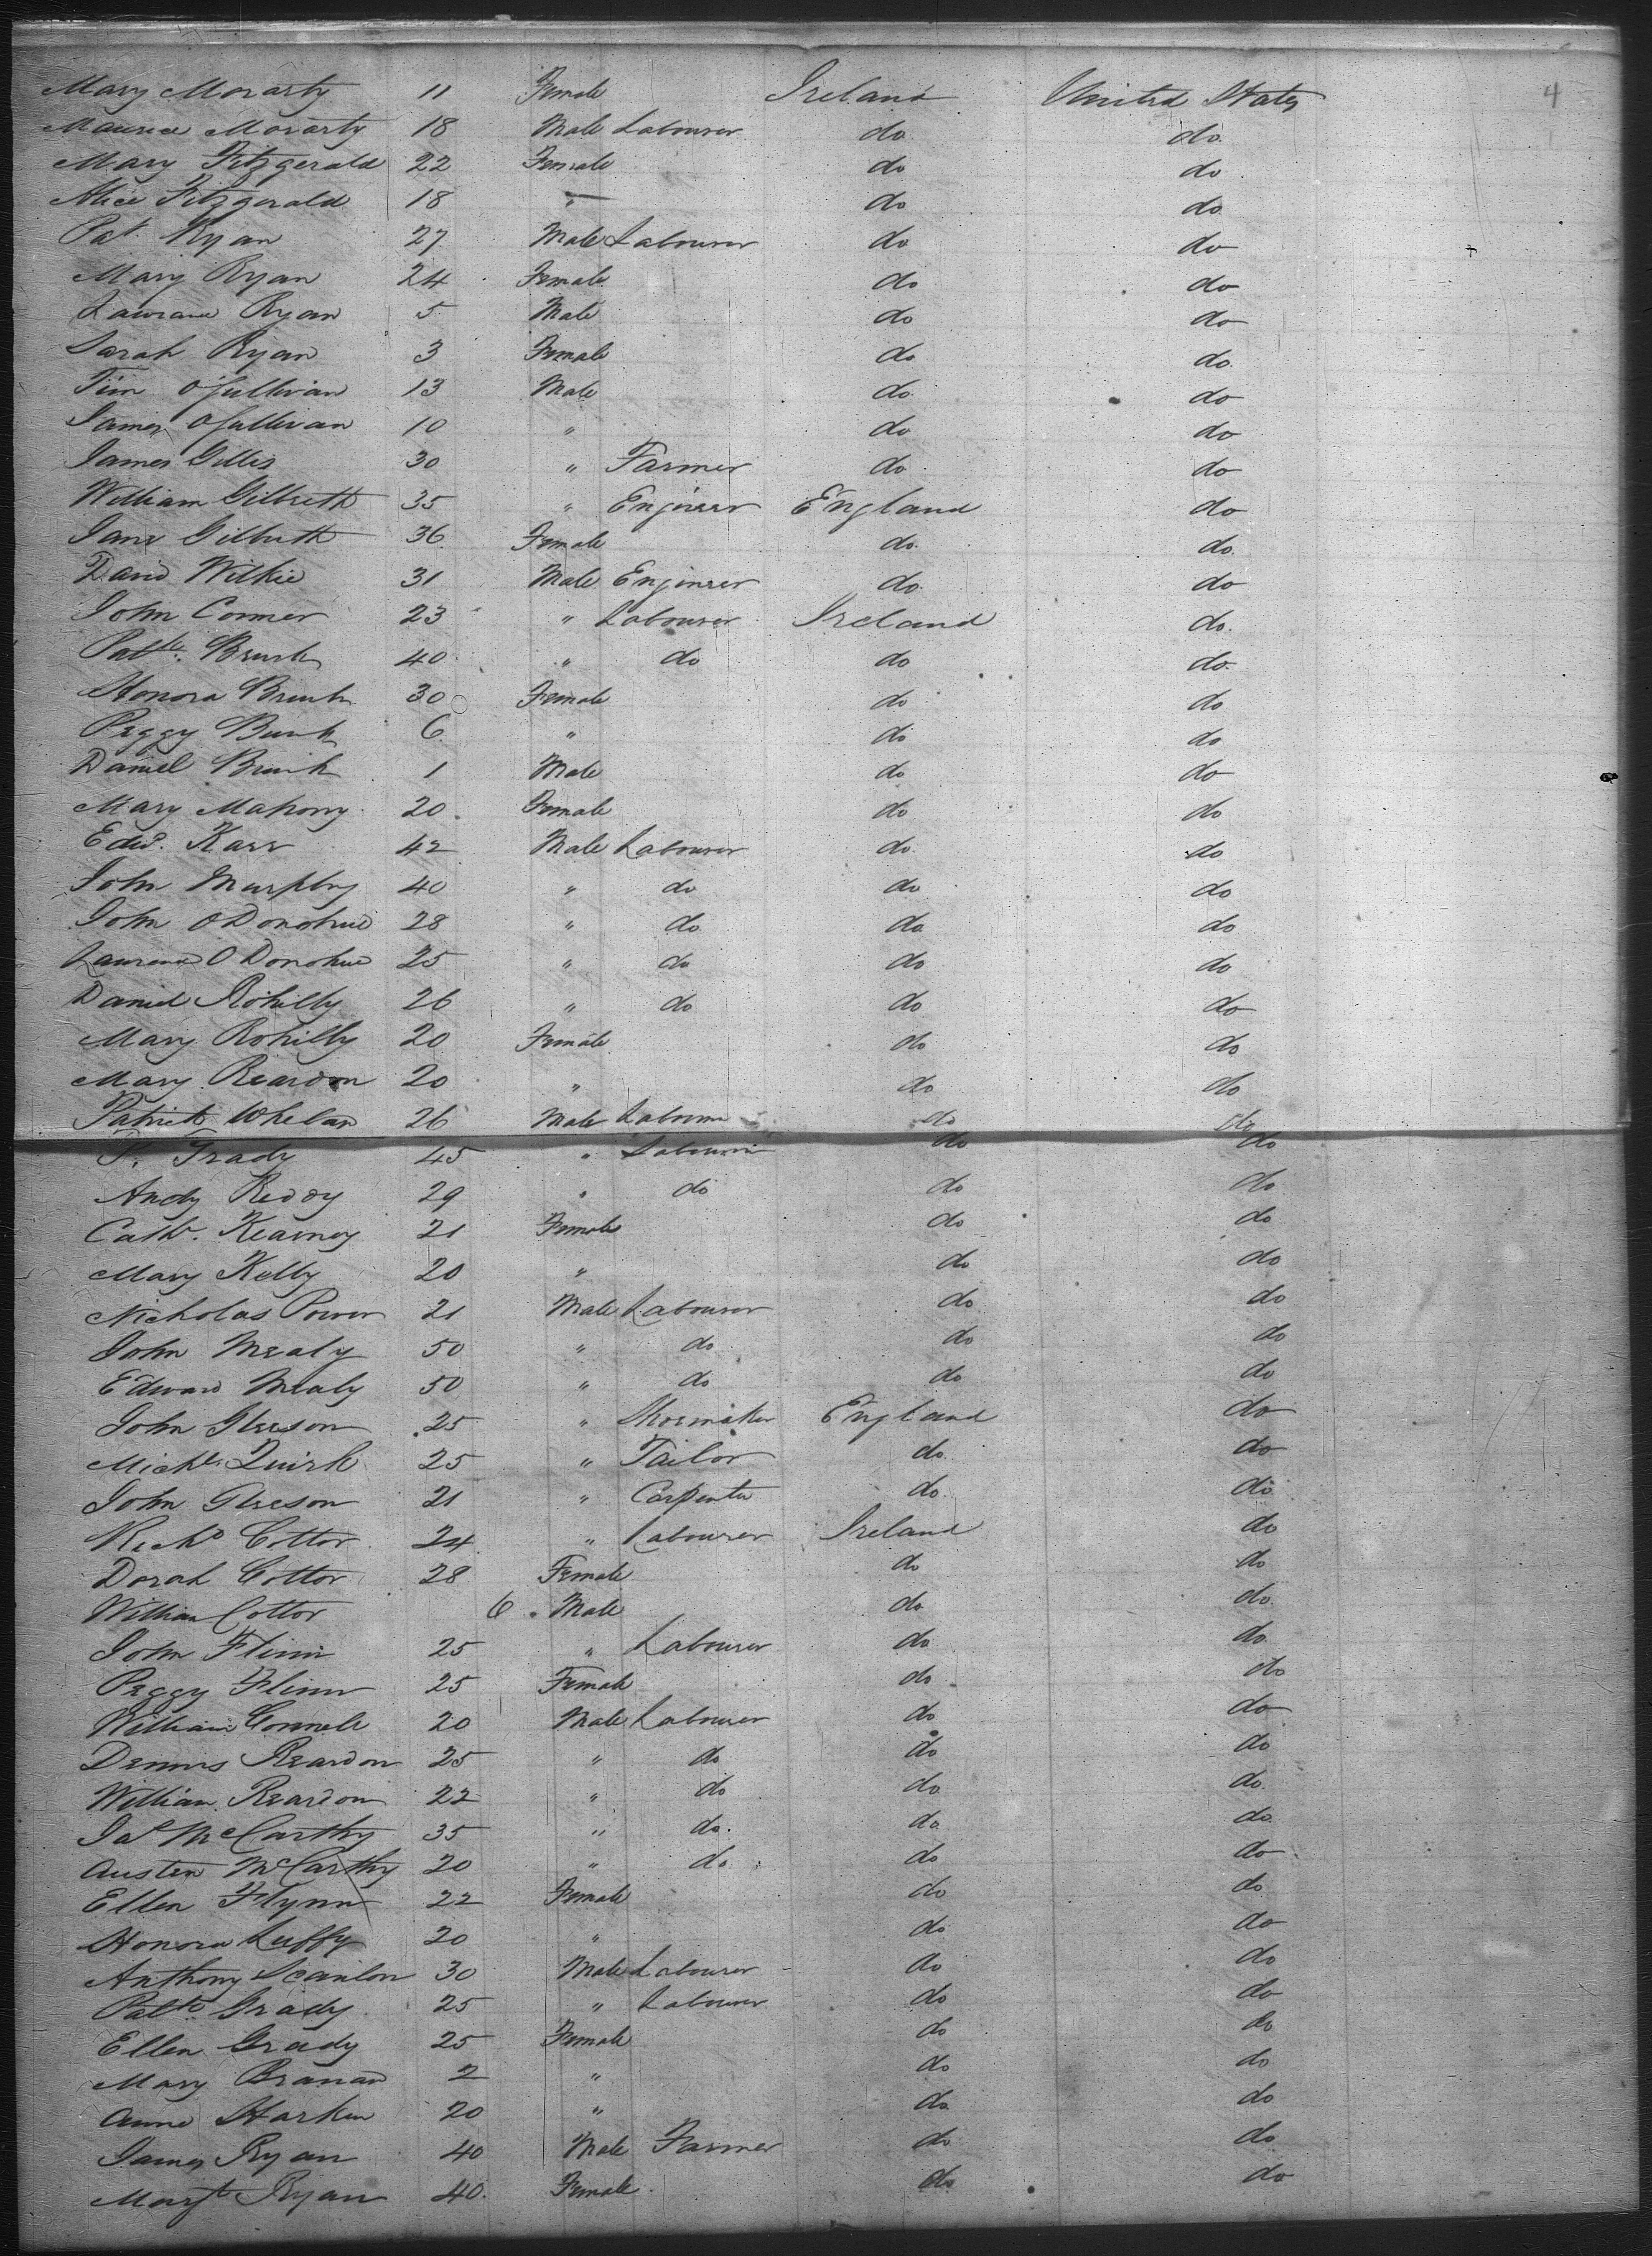 4
Mary Morarty 11 Female Ireland United States
Maurice Morarty 18 Male Labourer do do
Mary Fitzgerald 22 Female do do
Alice Fitzgerald 18 " do do
Pat Ryan 27 Male Labourer do do
Mary Ryan 24 Female do do
Laurance Ryan 5 Male do do
Sarah Ryan 3 Female do do
Tim O'Sullivan 13 Male do do
James O'Sullivan 10 " do do
James Gillis 30 " Farmer do do
William Gilbreth 35 " Engineer England do
Jane Gilbreth 36 Female do do
David Wilkie 31 Male Engineer do do
John Conner 23 " Labourer Ireland do
Pattk 40 " do do do
Honora 30 Female do do
Peggy 6 " do do
Daniel 1 Male do do
Mary Mahony 20 Female do do
Edwd. Karr 42 Male Labourer do do
John Murphy 40 " do do do
John O Donohue 28 " do do do
Laurence O Donohue 25 " do do do
Daniel Rohilly 26 " do do do
Mary Rohilly 20 Female do do
Mary Reardon 20 " do do
Patrick Whelan 26 Male Labourer do do
P. Grady 45 " Labourer do do
Andy Reddy 29 " do do do
Cathe. Kearney 21 Female do do
Mary Kelly 20 " do do
Nicholas Power 21 Male Labourer do do
John Mealy 50 " do do do
Edward Mealy 50 " do do do
John Gleeson 25 " Shoemaker England do
Michl. Quirk 25 " Tailor do do
John Gleeson 21 " Carpenter do do
Richd Cottor 24 " Labourer Ireland do
Dorah Cottor 28 Female do do
William Cottor 6 Male do do
John Flinn 25 " Labourer do do
Peggy Flinn 25 Female do do
William Connell 20 Male Labourer do do
Dennis Reardon 25 " do do do
William Reardon 22 " do do do
Jas McCarthy 35 " do do do
Austen McCarthy 20 " do do do
Ellen Flynn 22 Female do do
Honora Luffy 20 " do do
Anthony Scanlon 30 Male Labourer do do
Pattk Grady 25 " Labourer do do
Ellen Grady 25 Female do do
Mary Branan 2 " do do
Anne Harken 20 " do do
James Ryan 40 Male Farmer do do
Margt Ryan 40 Female do do